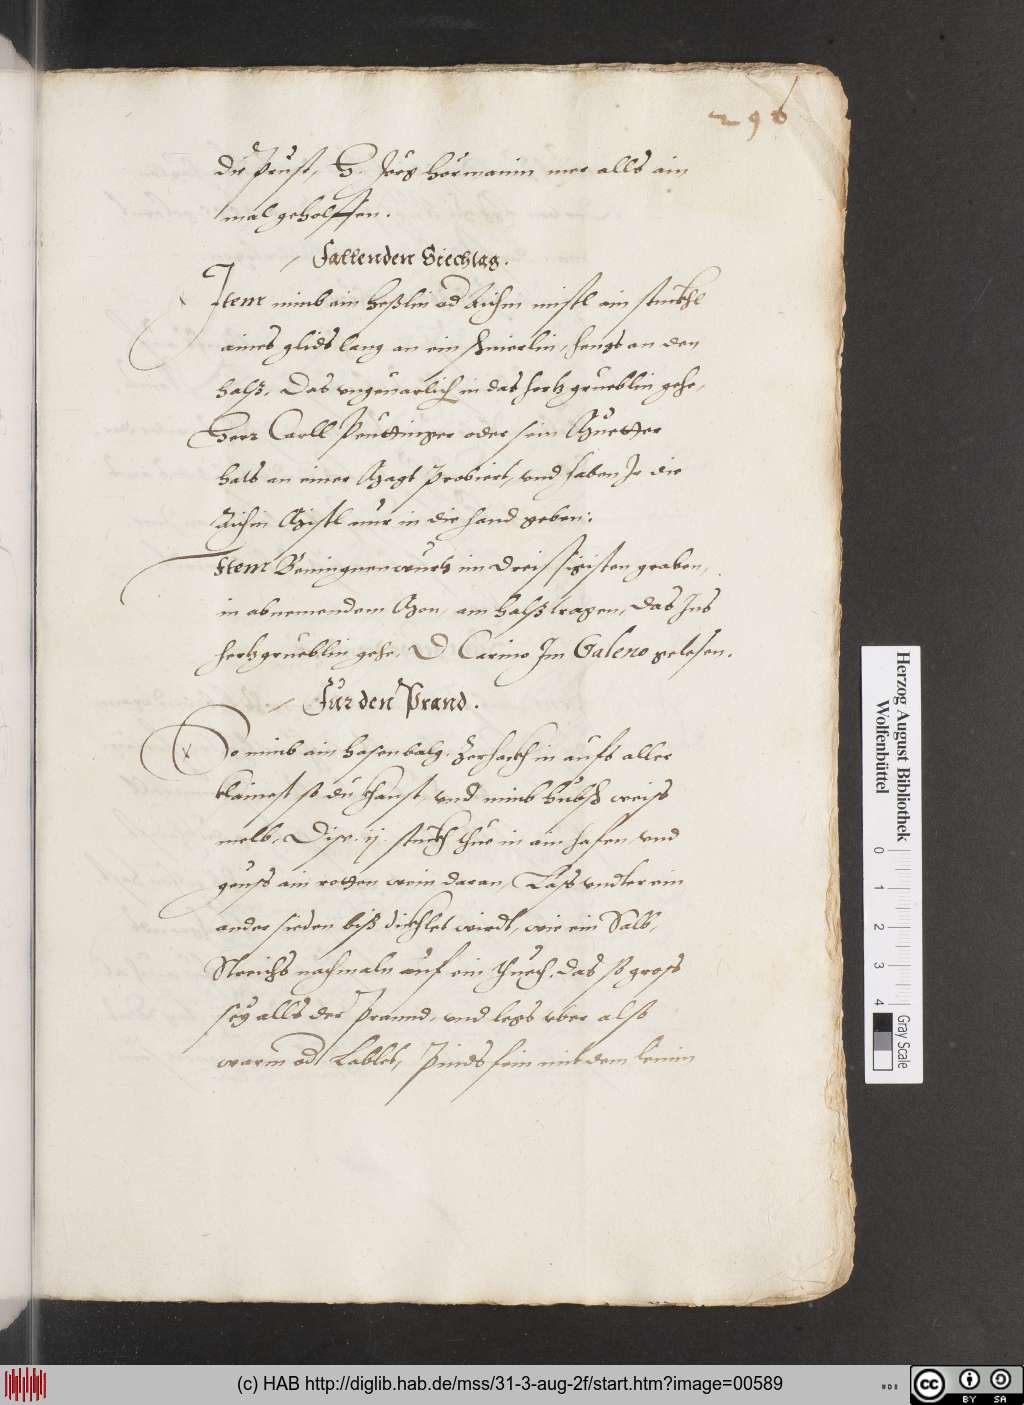 296
die Prust, H. Jörg Hörmann mer alls ain
mal geholffen.
Fallenden Siechtag.
Item nimb ain Heßlin od Aichin mistl ain stückhl
aines glids lang an ein schnierlin, hengs an den
halß, Das vngeuarlich in das hertzgrueblin gehe,
Herr Carll Peuttinger oder sein Muetter
hats an einer Magt Probiert, vnd haben Jr die
Aichin Mistl nur in die hand geben.
Item Beningnenwurtz im Dreissigisten graben,
in abnemendem Mon, am halß tragen, das Jns
hertzgrueblin gehe. D. Carino Jm Galeno gelesen.
Für den Prand.
So nimb ain hasenbalg, Zerhackh in aufs aller
klainest so du khanst, vnd nimb hübsch weiss
melb, Diser ij stuckh thue in ain hafen, vnd
geuss ain rotten wein daran, Lass vndterein
ander sieden biß dickhlet wirdt, wie ein Salb,
Streichs nachmaln auf ein thuech, das so gross
sey alls der Prannd, vnd legs vber also
warm od Lablet, Pinds fein mit dem
Herzog August Bibliothek
Wolfenbüttel
0 1 2 3 4
Gray Scale
(c) HAB http://diglib.hab.de/mss/31-3-aug-2f/start.htm?image=00589
cc
BY SA